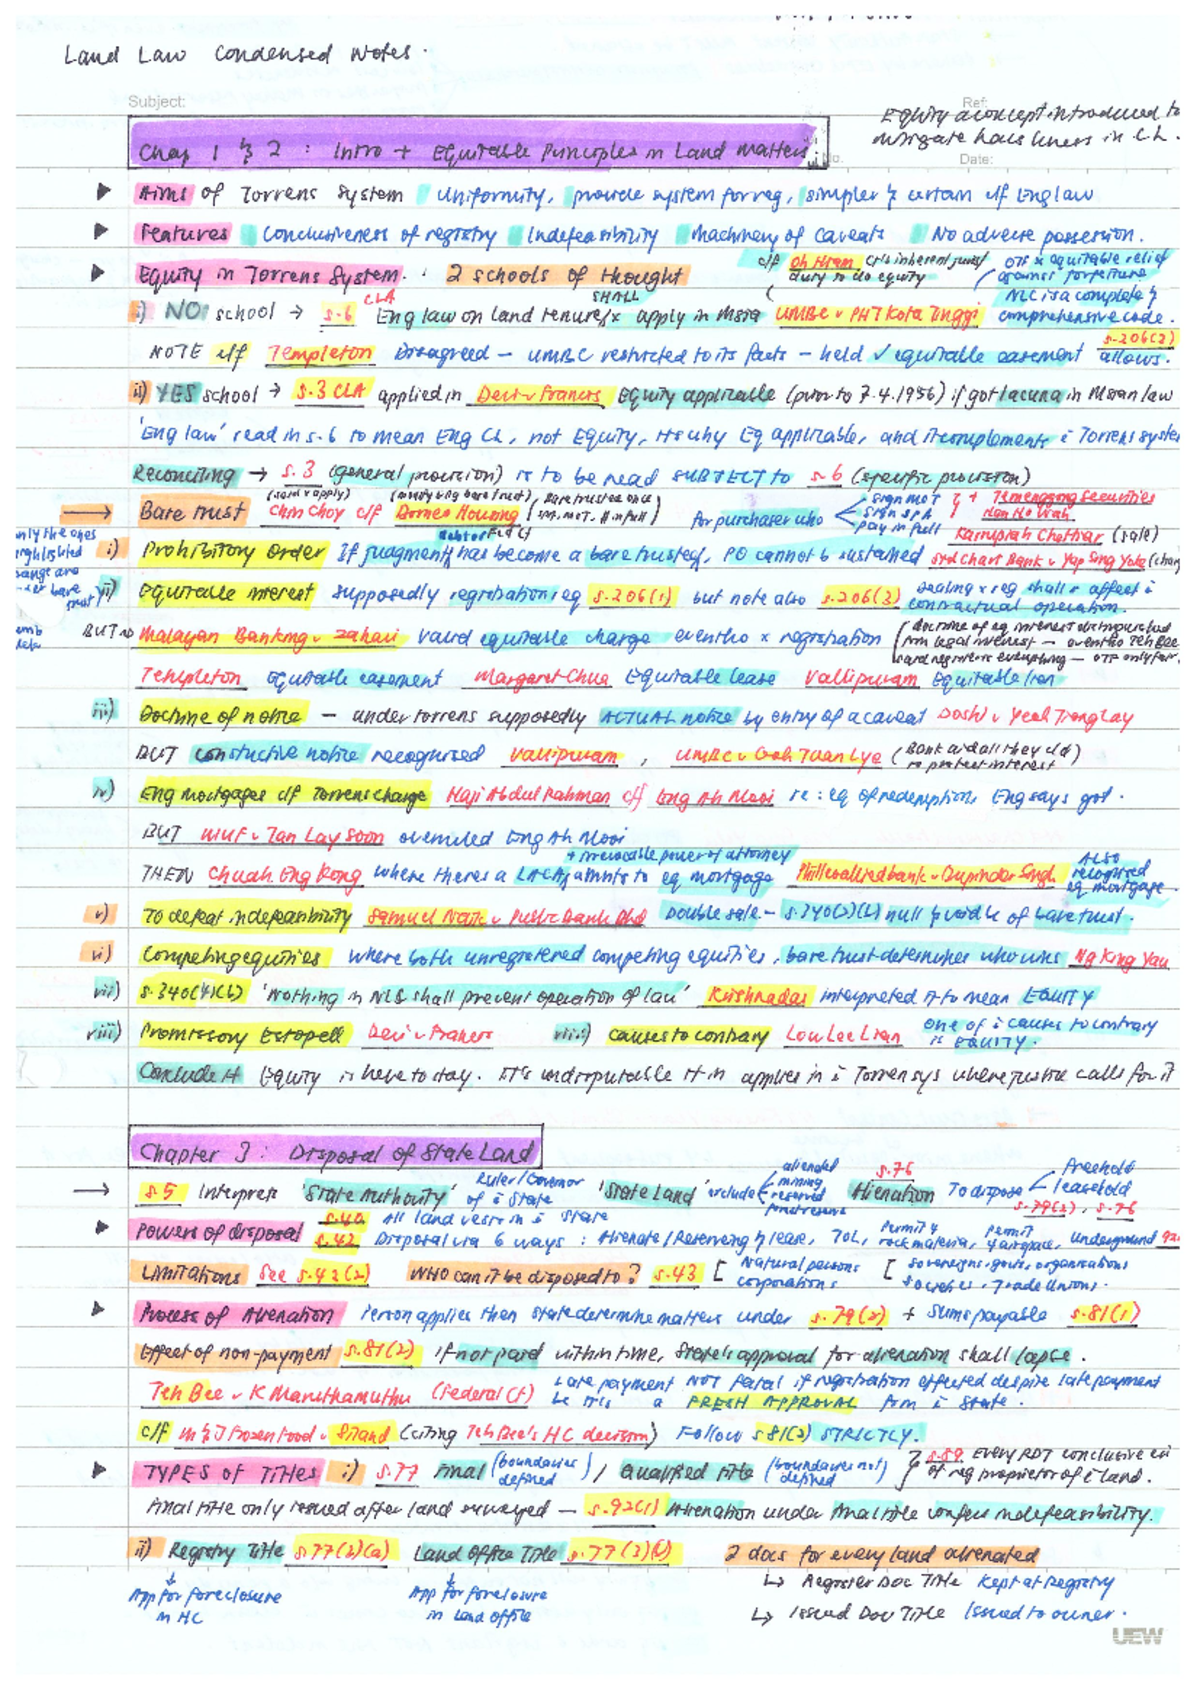 Land Law Condensed Notes.
Subject:
Ref:
Equity a concept introduced to
mitigate harshness in C.L.
Chap 1 & 2 : Intro + Equitable Principles in Land matters
No.
Date:
Aims of Torrens System Uniformity, provide system for reg, simpler & certain c/f Eng law
Features Conclusiveness of registry Indefeasibility Machinery of Caveats No adverse possession.
Equity in Torrens System. : 2 schools of thought
c/f Oh Hiam Crts inherent jurisd
duty to do equity
OTF x equitable relief
against forfeiture
i) NO school → s.6 CLA Eng law on land tenure SHALL x apply in Msia UMBC v PHT Kota Tinggi
NLC is a complete &
comprehensive code.
s.206(3)
NOTE c/f Templeton Disagreed – UMBC restricted to its facts – held ✓ equitable easement allows.
ii) YES school → s.3 CLA applied in Devi v Francis Equity applicable (prior to 7.4.1956) if got lacuna in Msian law
'Eng law' read in s.6 to mean Eng CL, not Equity, tts why Eq applicable, and it complements i Torrens system
Reconciling → s.3 (general provision) is to be read SUBJECT to s.6 (specific provision)
Bare trust Chin Choy c/f Borneo Housing
for purchaser who
sign MOT
sign SPA
pay in full
+ Temenggong Securities
Karuppiah Chettiar (sale)
only the ones
highlighted
i) Prohibitory Order If judgment debtor has become a bare trustee, PO cannot b sustained Std Chart Bank v Yap Sing Yoke
ii) Equitable interest supposedly registration req s.206(1) but note also s.206(3) Dealing x reg shall x affect i
contractual operation.
BUT → Malayan Banking v Zahari Valid equitable charge eventho x registration
Templeton Equitable easement Margaret Chua Equitable lease Vallipuram Equitable lien
iii) Doctrine of notice – under torrens supposedly ACTUAL notice by entry of a caveat Doshi v Yeoh Tiong Lay
BUT constructive notice recognised Vallipuram , UMBC v Goh Tuan Lye (Bank did all they cld
to protect interest)
iv) Eng mortgages c/f Torrens charge Haji Abdul Rahman c/f Long Ah Mooi re : eq of redemption, Eng says got.
BUT MUF v Tan Lay Soon overruled Eng Ah Mooi
+ irrevocable power of attorney
THEN Chuah Eng Kong where theres a LACA, amnts to eq mortgage Phileoallied bank v Bupinder Singh
ALSO
recognised
eq mortgage
v) To defeat indefeasibility Samuel Naik v Public Bank Bhd Double sale – s.340(2)(b) null & void bc of bare trust.
vi) Competing equities where both unregistered competing equities, bare trust determines who wins Ng King Yau
vii) s.340(4)(b) 'Nothing in NLC shall prevent operation of law' Krishnadas interpreted it to mean EQUITY
viii) Promissory Estopell Devi v Francis viiii) Causes to contrary Low Lee Lian one of i causes to contrary
is EQUITY.
Conclude tt Equity is here to stay. It's undisputable tt it applies in i Torren sys where justice calls for it
Chapter 3 : Disposal of State Land
s.5 Interprets 'State Authority' Ruler/Governor
of i State
'State Land' exclude
alienated
mining
reserved
s.76
Alienation To dispose
freehold
leasehold
s.79(2), s.76
Powers of disposal s.40 All land vests in i State
s.42 Disposal via 6 ways : Alienate/Reserving & lease, TOL, permit 4
rock material, permit
4 airspace, underground
Limitations See s.42(2) WHO can it be disposed to? s.43 [ Natural persons
corporations
[ Sovereigns, govts, organisations
Societies, Trade Unions.
Process of Alienation Person applies then state determine matters under s.79(2) + Sums payable s.81(1)
Effect of non-payment s.81(2) if not paid within time, State's approval for alienation shall lapse.
Teh Bee v K Maruthamuthu (Federal Ct) Late payment NOT fatal if registration effected despite late payment
bc tt's a FRESH APPROVAL from i State.
c/f M & J Frozen Food v Siland (citing Teh Bee's HC decision) Follow s81(2) STRICTLY.
TYPES of TITLES i) s.77 Final (boundaries
defined) / Qualified title (boundaries not
defined)
s.89 EVERY RDT conclusive evi
of reg proprietor of i land.
Final title only issued after land surveyed – s.92(1) Alienation under final title confers indefeasibility.
ii) Registry Title s.77(3)(a) Land Office Title s.77(3)(b) 2 docs for every land alienated
App for foreclosure
in HC
App for foreclosure
in Land Office
↳ Register Doc Title Kept at Registry
↳ Issued Doc Title Issued to owner.
UEW